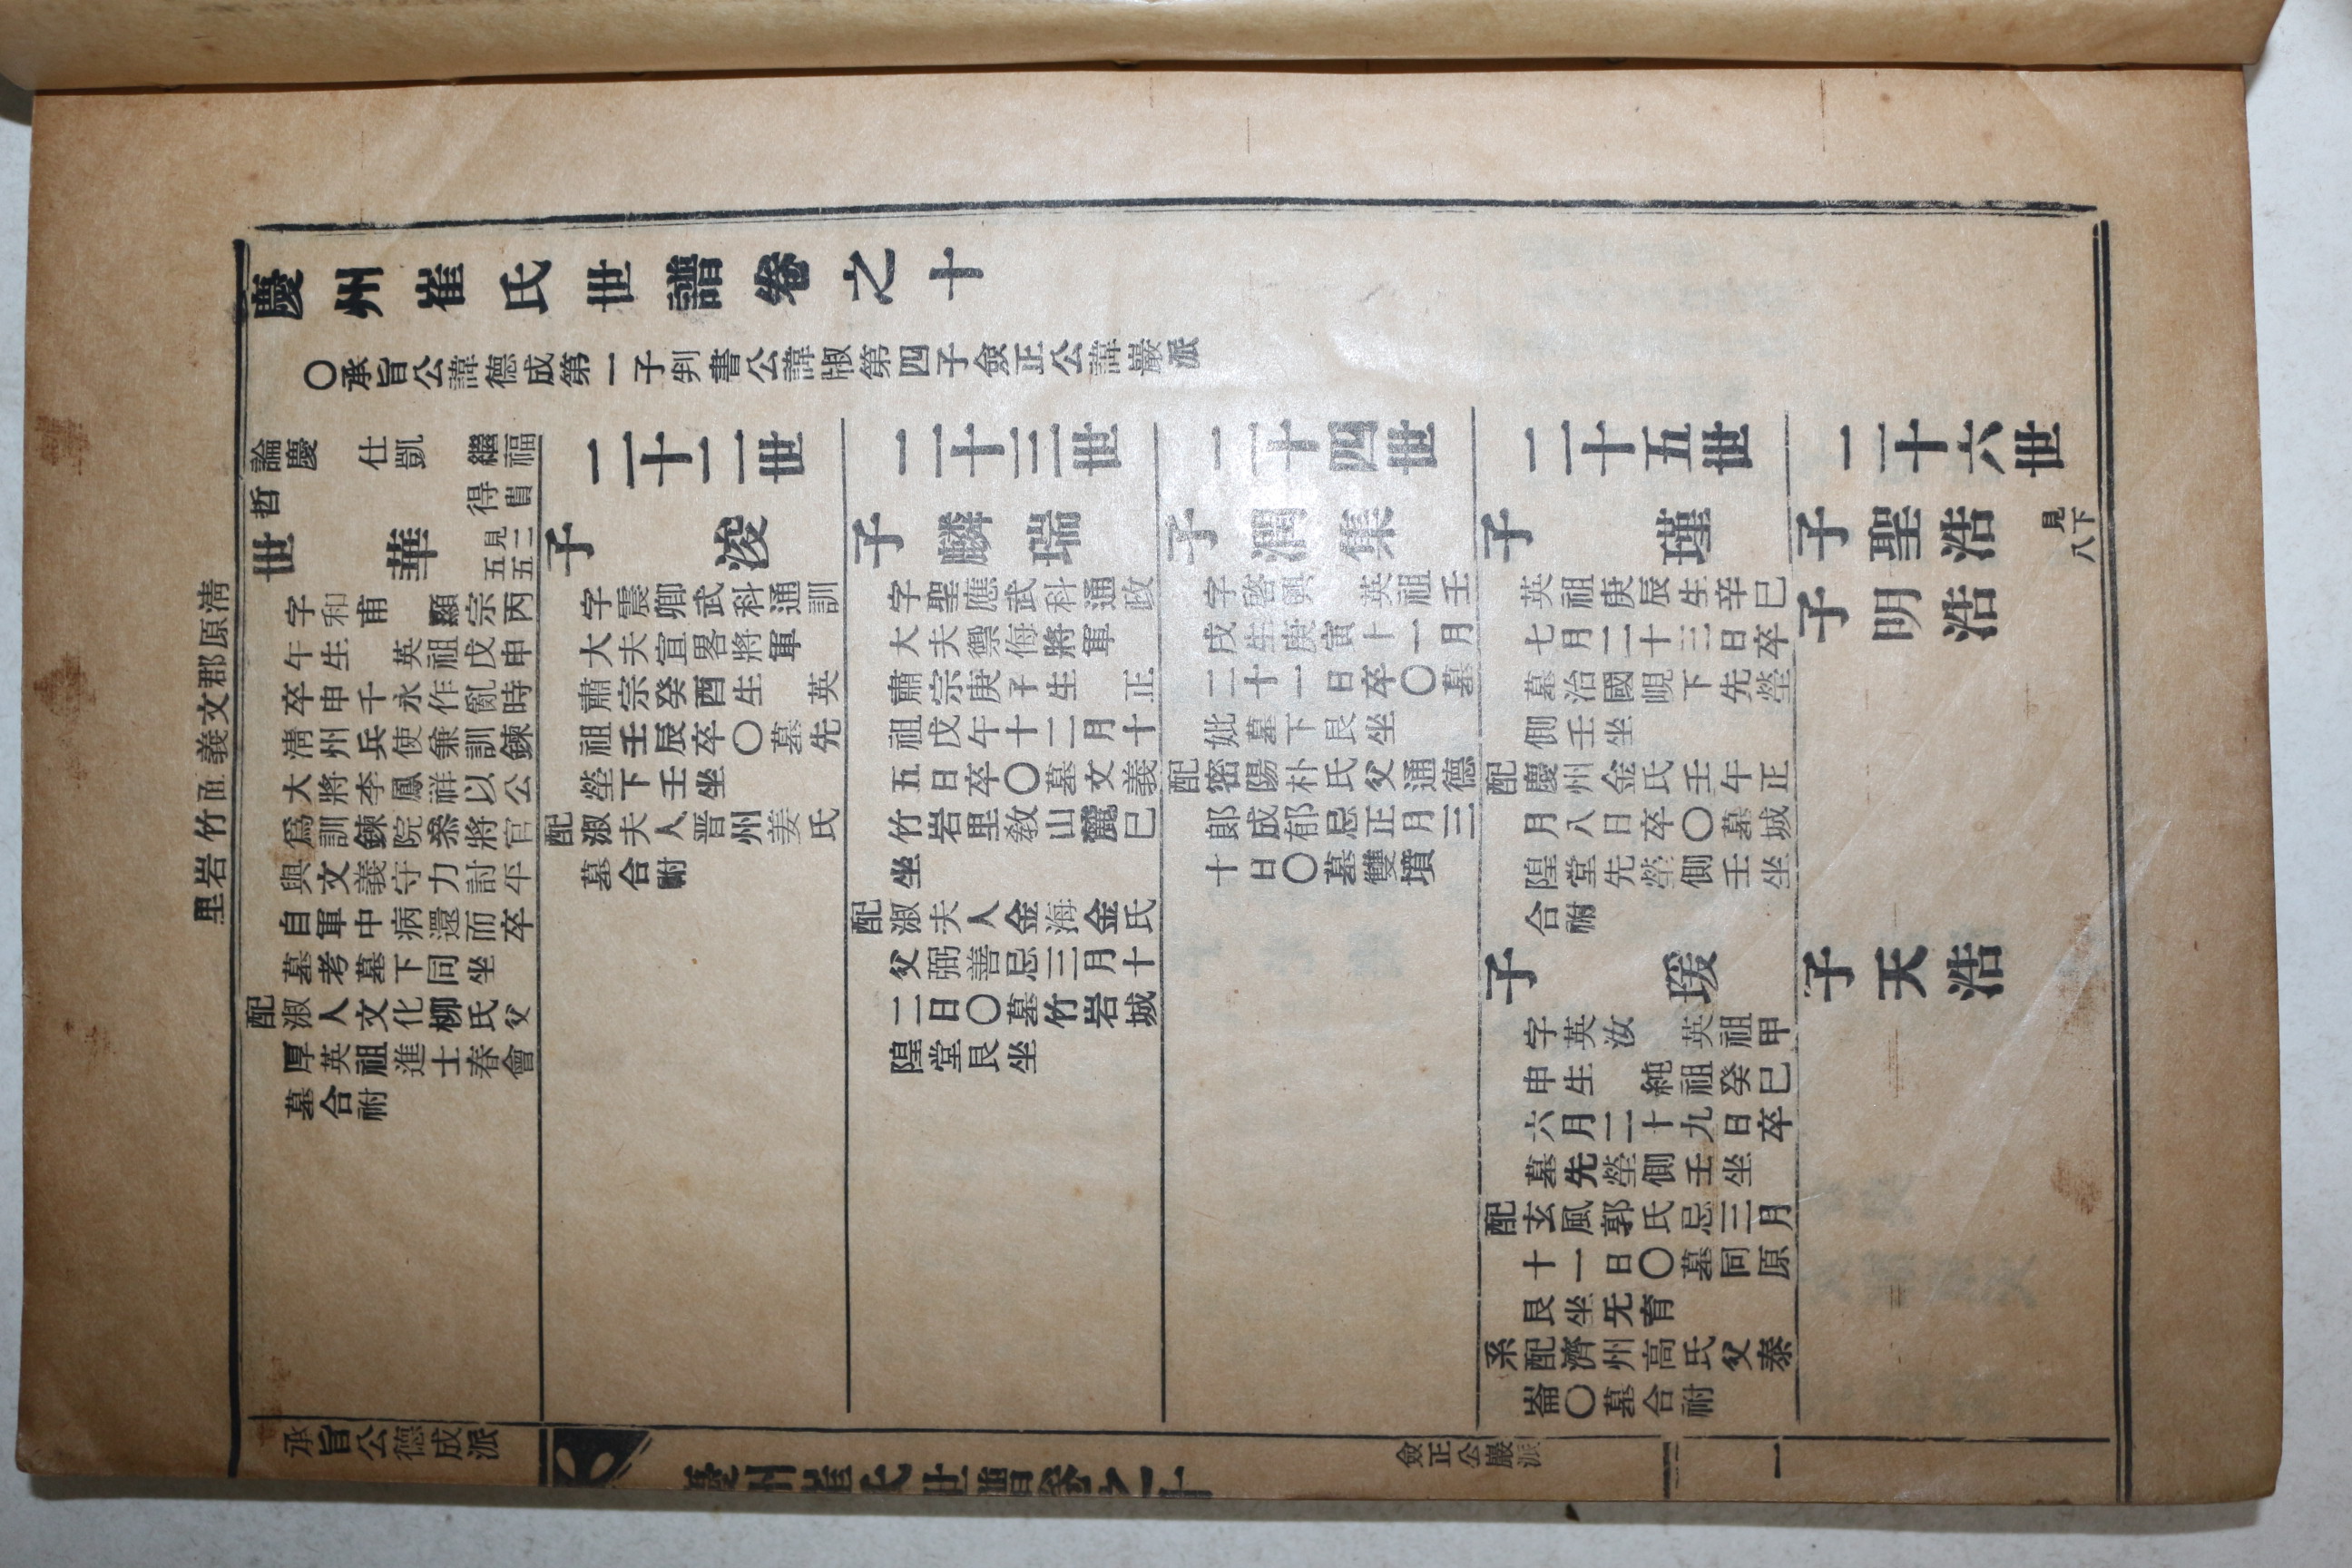 淸原郡文義面竹岩里
慶州崔氏世譜卷之十
〇承旨公諱德成第一子判書公諱椒第四子僉正公諱巖派
論慶 仕凱 繼福
哲 得貴
世華 見二五五
字和甫 顯宗丙
午生 英祖戊申
卒申千永作亂時
淸州兵使兼訓鍊
大將李鳳祥以公
爲訓鍊院叅將官
與文義守力討平
自軍中病還而卒
墓考墓下同坐
配淑人文化柳氏父
厚英祖進士春會
墓合祔
二十二世
子浚
字震卿武科通訓
大夫宣畧將軍
肅宗癸酉生 英
祖壬辰卒〇墓先
塋下壬坐
配淑夫人晋州姜氏
墓合祔
二十三世
子麟瑞
字聖應武科通政
大夫禦侮將軍
肅宗庚子生 正
祖戊午十二月十
五日卒〇墓文義
竹岩里敎山麓巳
坐
配淑夫人金海金氏
父弼善忌三月十
二日〇墓竹岩城
隍堂艮坐
二十四世
子潤集
字啓興 英祖壬
戌生庚寅十一月
二十一日卒〇墓
妣墓下艮坐
配密陽朴氏父通德
郞成郁忌正月三
十日〇墓雙墳
二十五世
子瑾
英祖庚辰生辛巳
七月二十三日卒
墓治國峴下先塋
側壬坐
配慶州金氏壬午正
月八日卒〇墓城
隍堂先塋側壬坐
合祔
子瑗
字英汝 英祖甲
申生 純祖癸巳
六月二十九日卒
墓先塋側壬坐
配玄風郭氏忌三月
十一日〇墓同原
艮坐无育
系配濟州高氏父泰
崙〇墓合祔
二十六世
子聖浩 見下八
子明浩
子天浩
承旨公德成派
慶州崔氏世譜卷之十
僉正公巖派
一